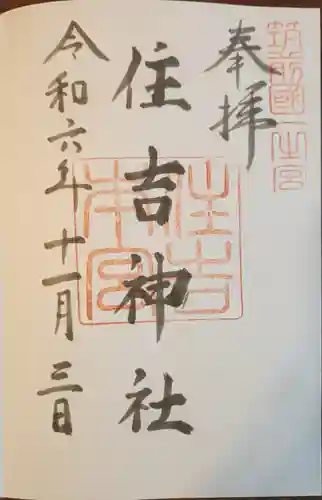 筑前國一之宮
奉拝
住吉神社
住吉本宮
令和六年十一月三日